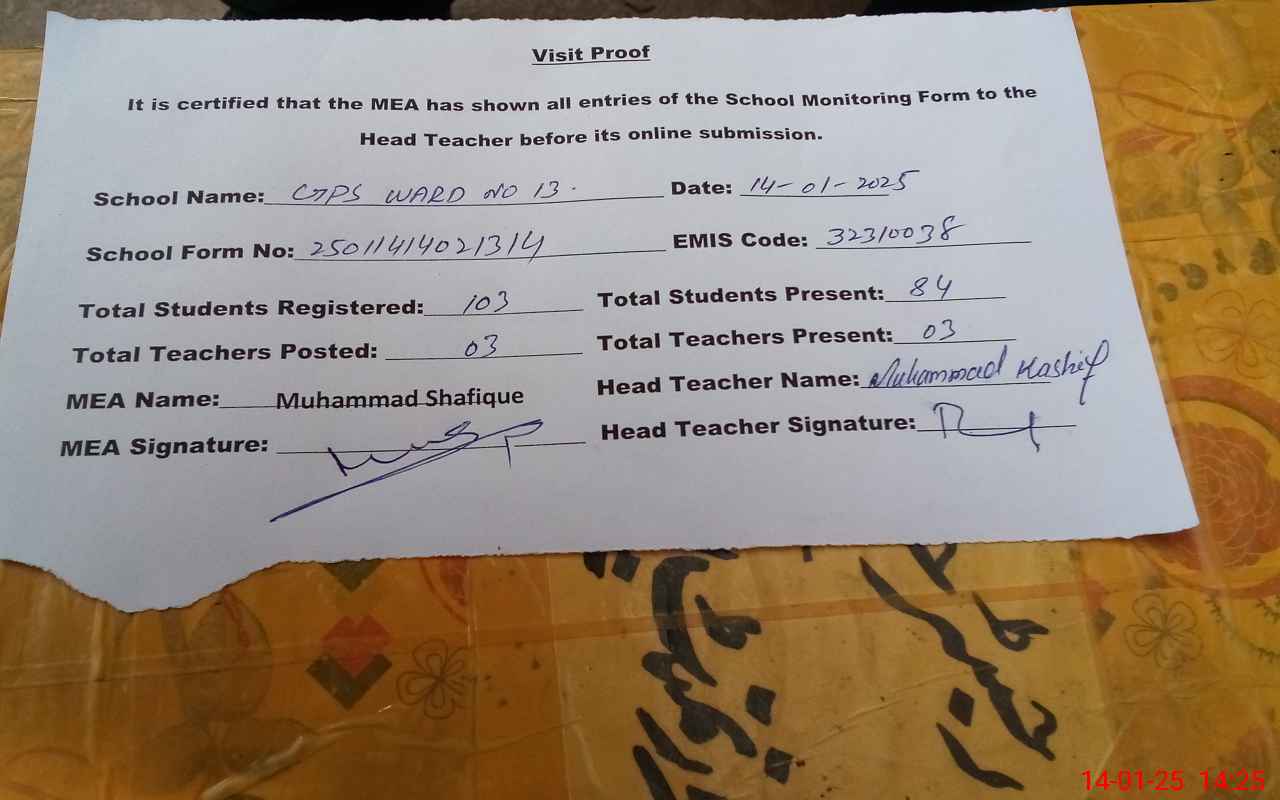 Visit Proof
It is certified that the MEA has shown all entries of the School Monitoring Form to the
Head Teacher before its online submission.
School Name: GPS WARD NO 13. Date: 14-01-2025
School Form No: 25011414021314 EMIS Code: 32310038
Total Students Registered: 103 Total Students Present: 84
Total Teachers Posted: 03 Total Teachers Present: 03
MEA Name: Muhammad Shafique Head Teacher Name: Muhammad Kashif
MEA Signature: Head Teacher Signature:
14-01-25 14:25